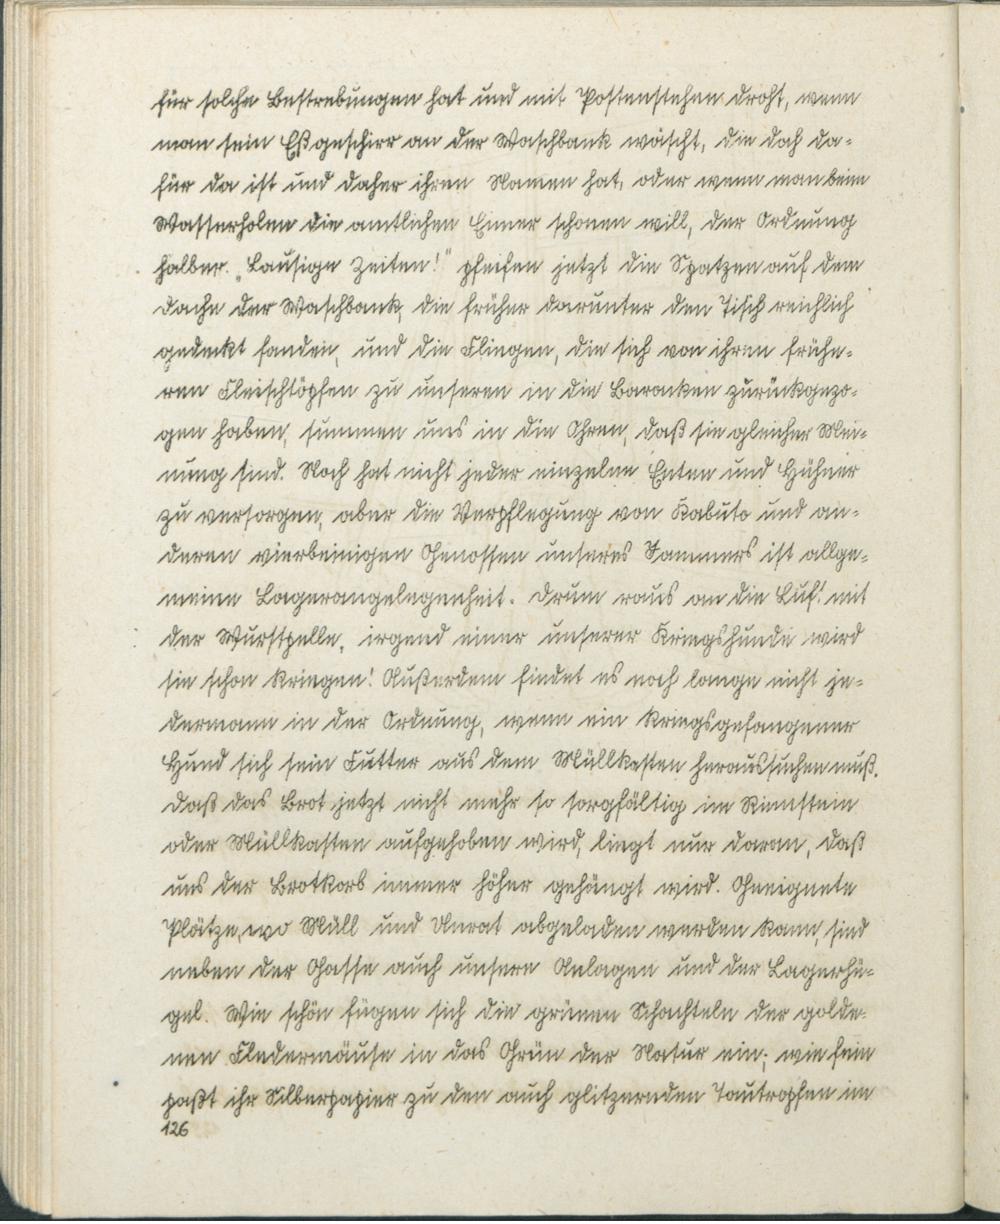 für solche Bestrebungen hat und mit Postenstehen droht, wenn
man sein Eßgeschirr an der Waschbank wäscht, die doch da-
für da ist und daher ihren Namen hat, oder wenn man beim
Wasserholen die amtlichen Eimer schonen will, der Ordnung
halber. „Lausige Zeiten!" pfeifen jetzt die Spatzen auf dem
Dache der Waschbank, die früher darunter den Tisch reichlich
gedeckt fanden, und die Fliegen, die sich von ihren frühe-
ren Fleischtöpfen zu unseren in die Baracken zurückgezo-
gen haben, summen uns in die Ohren, daß sie gleicher Mei-
nung sind. Noch hat nicht jeder einzelne Enten und Hühner
zu versorgen, aber die Verpflegung von Kabuto und an-
deren vierbeinigen Genossen unseres Jammers ist allge-
meine Lagerangelegenheit. Drum raus an die Luft mit
der Wurstpelle, irgend einer unserer Kriegshunde wird
sie schon kriegen! Außerdem findet es noch lange nicht je-
dermann in der Ordnung, wenn ein kriegsgefangener
Hund sich sein Futter aus dem Müllkasten heraussuchen muß.
Daß das Brot jetzt nicht mehr so sorgfältig im Rinnstein
oder Müllkasten aufgehoben wird, liegt nur daran, daß
uns der Brotkorb immer höher gehängt wird. Geeignete
Plätze, wo Müll und Unrat abgeladen werden kann, sind
neben der Gasse auch unsere Anlagen und der Lagerhü-
gel. Wie schön fügen sich die grünen Schachteln der golde-
nen Fledermäuse in das Grün der Natur ein; wie fein
paßt ihr Silberpapier zu den auch glitzernden Tautropfen im
126